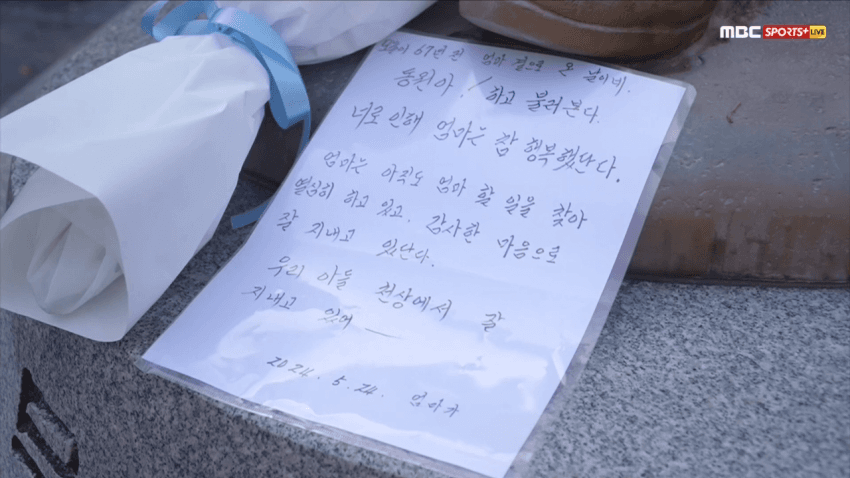 MBC SPORTS+ LIVE
67년 전 엄마 곁으로 온 날이네.
동원아! 하고 불러본다.
너로 인해 엄마는 참 행복했단다.
엄마는 아직도 엄마 할 일을 찾아
열심히 하고 있고. 감사한 마음으로
잘 지내고 있단다.
우리 아들 천상에서 잘
지내고 있어
2024. 5. 24. 엄마가